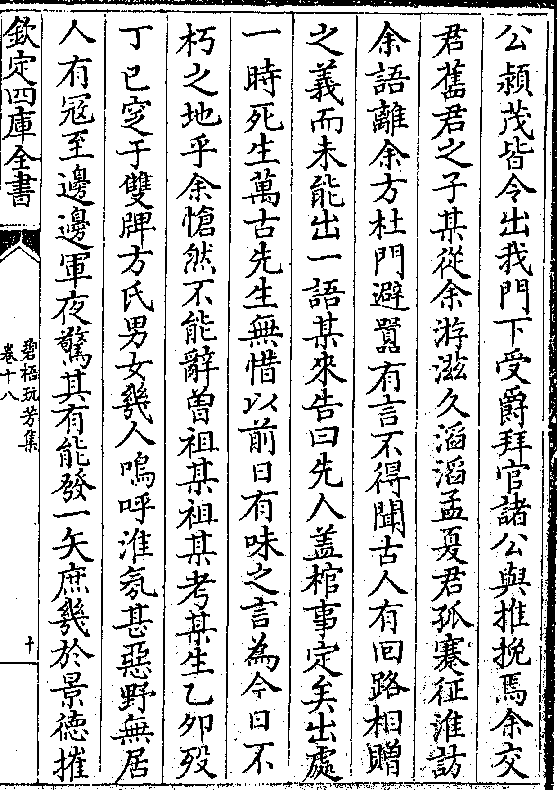 公潁茂皆令出我門下受爵拜官諸公與推挽焉余交
君舊君之子某從余游滋久滔滔孟夏君孤蹇征淮訪
余語離余方杜門避囂有言不得聞古人有回路相贈
之義而未能出一語某來告曰先人蓋棺事定矣出處
一時死生萬古先生無惜以前日有味之言為今日不
朽之地乎余愴然不能辭曽祖某祖某考某生乙卯殁
丁巳窆于雙牌方氏男女幾人嗚呼淮氛甚惡野無居
人有冦至邊邊軍夜驚其有能發一矢庶幾於景德摧
欽定四庫全書
碧梧玩芳集
卷十八
十